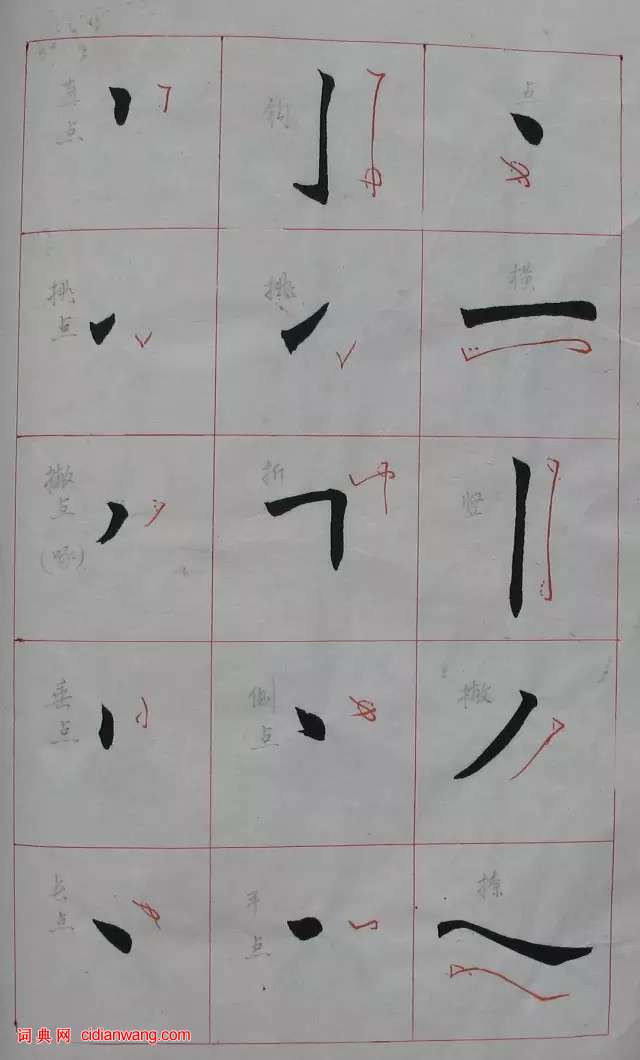 直点
钩
点
挑点
挑
横
撇点
(啄)
折
竖
垂点
侧点
撇
长点
平点
捺
词典网 cidianwang.com